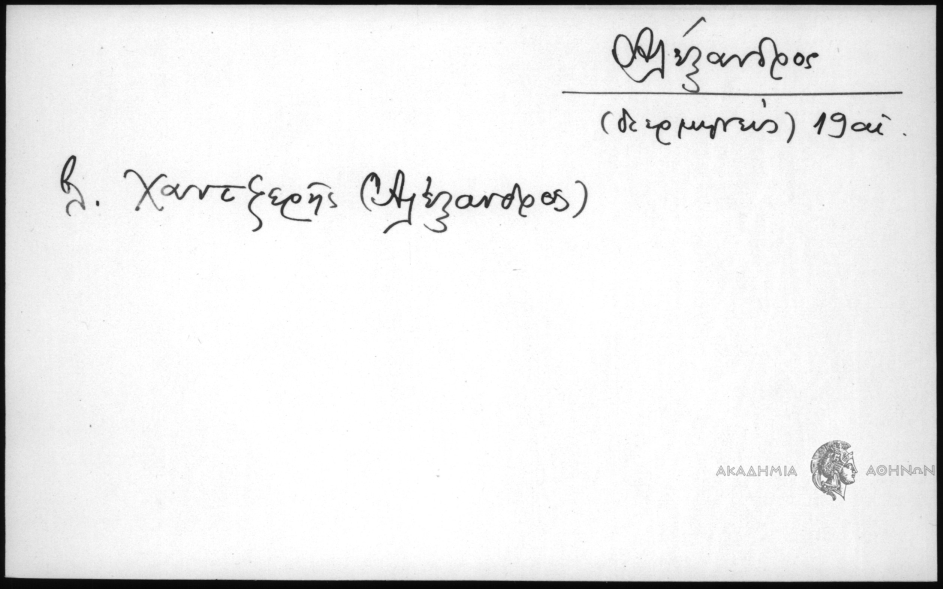 Ἀλέξανδρος
(διερμηνεύς) 19 αἰ.
βλ. Χαντζερῆς (Ἀλέξανδρος)
ΑΚΑΔΗΜΙΑ ΑΘΗΝΩΝ